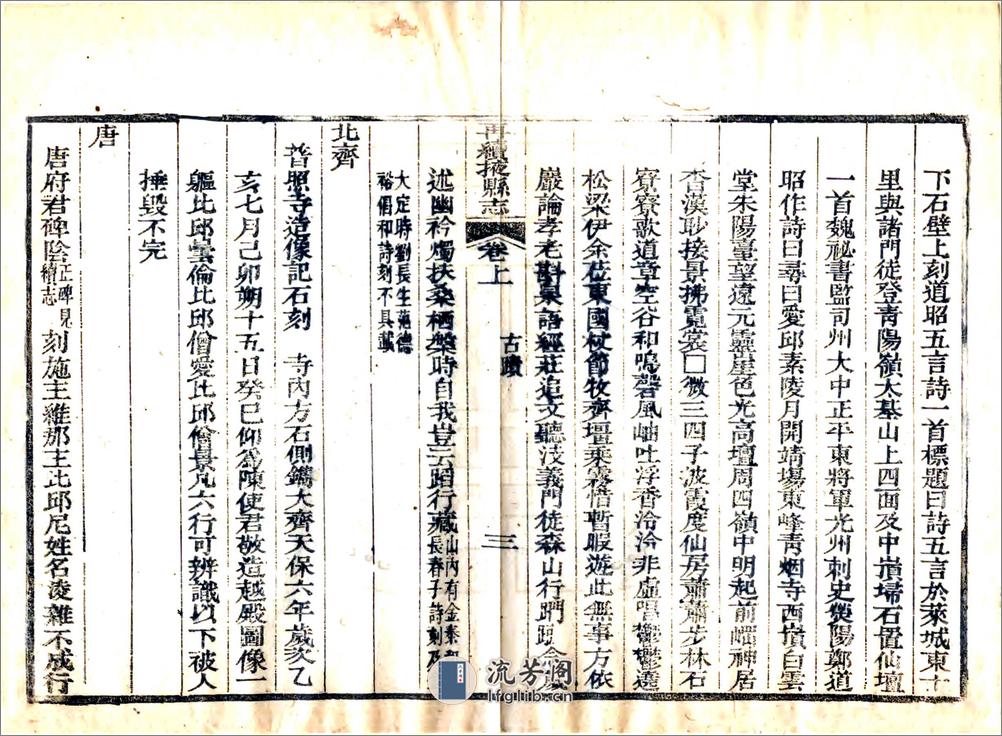 下石壁上刻道昭五言詩一首標題曰詩五言於萊城東十
里與諸門徒登青陽嶺太基山上四面及中𡾟掃石置仙壇
一首魏祕書監司州大中正平東將軍光州刺史熒陽鄭道
昭作詩曰尋日愛邱素陵月開靖場東峰青烟寺西𡾟白雲
堂朱陽臺望遠元靈崖色光高壇周四嶺中明起前𡾟神居
杳漢眇接景拂霓裳□微三四子波霞度仙房蕭蕭步林石
寮寮歌道章空谷和鳴磬風岫吐浮香泠泠非虛唱鬱鬱遶
松梁伊余莅東國杖節牧齊壃乘務惜暫暇遊此無事方依
巖論孝老斟泉語經莊追文聽浅義門徒森山行躋
再續掖縣志 卷上 古蹟 三
述幽衿燭扶桑栖槃時自我豈云蹈行藏山內有金泰和
長春子詩刻及
大定時劉長生范德
裕倡和詩刻不具載
北齊
普照寺造像記石刻 寺內方石側鐫大齊天保六年歲次乙
亥七月己卯朔十五日癸巳仰為陳使君敬造越殿圖像一
軀比邱曇倫比邱僧愛比邱僧景凡六行可辨識以下被人
捶毀不完
唐
唐府君碑陰正碑見續志 刻施主維那王比邱尼姓名凌雜不成行
流芳阁
lfglib.cn